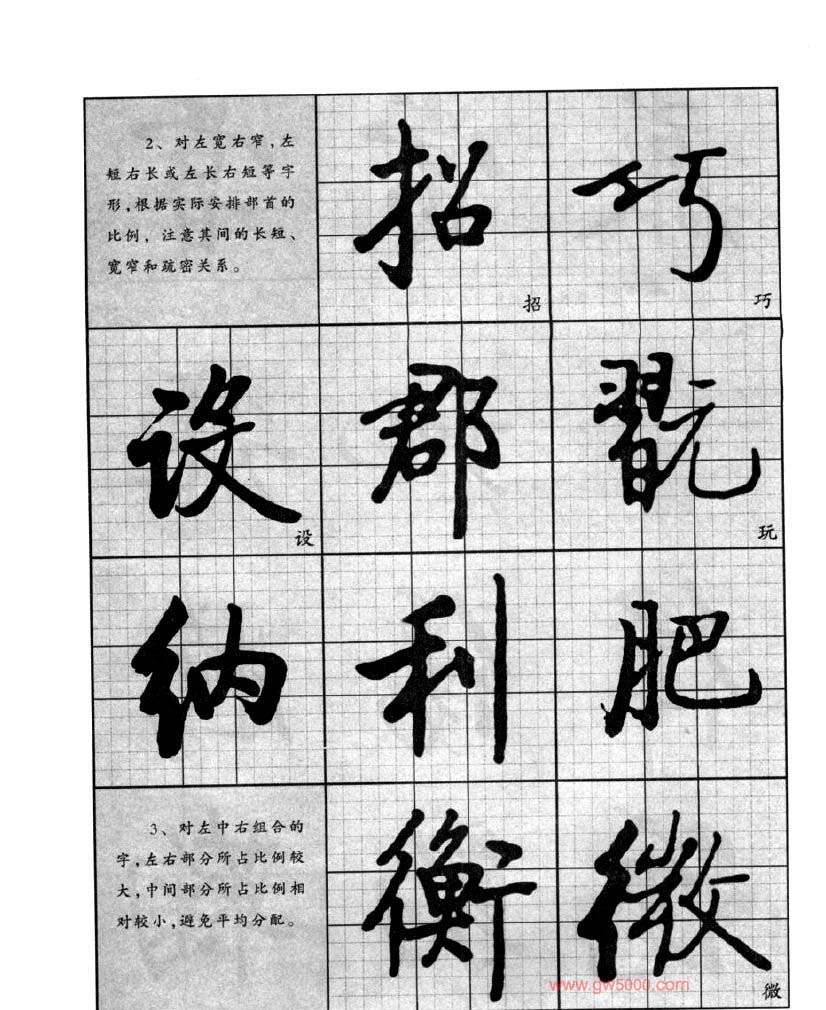 2、对左宽右窄,左
短右长或左长右短等字
形,根据实际安排部首的
比例，注意其间的长短、
宽窄和疏密关系。
招
巧
招
巧
设
郡
翫
设
玩
纳
利
肥
3、对左中右组合的
字,左右部分所占比例较
大,中间部分所占比例相
对较小,避免平均分配。
衡
微
www.gw5000.com
微